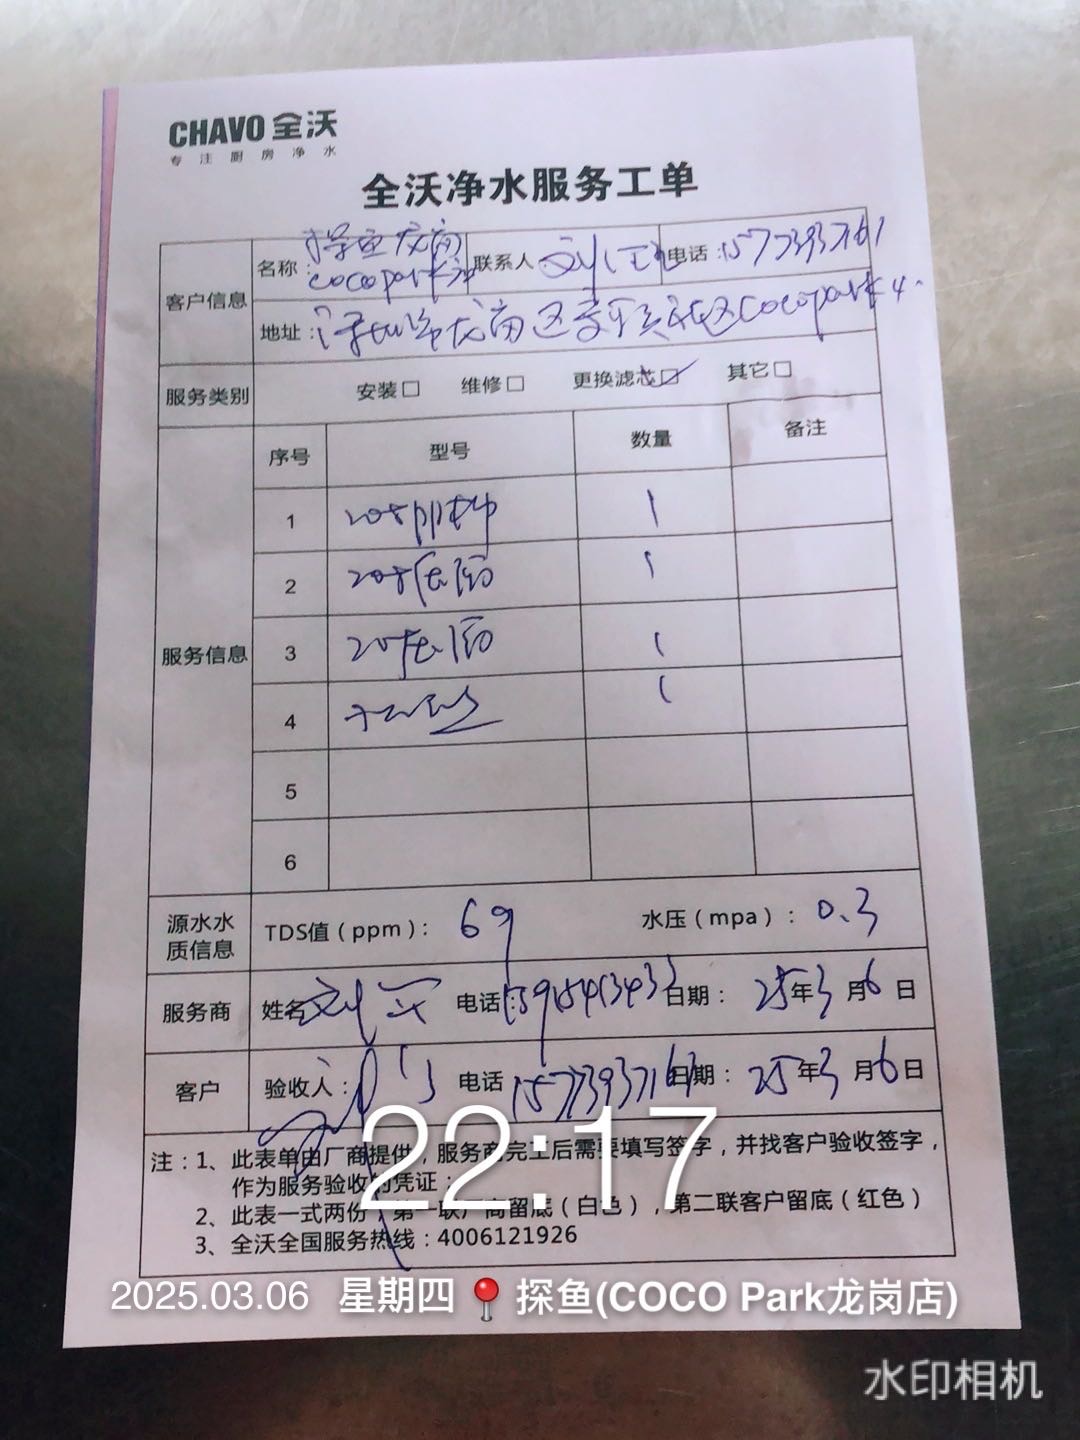 CHAVO 全沃
专注厨房净水
全沃净水服务工单
客户信息 名称：探鱼龙岗cocopark店 联系人 电话：15773937161
地址：深圳市龙岗区 cocopark 4
服务类别 安装□ 维修□ 更换滤芯☑ 其它□
服务信息 序号 型号 数量 备注
1 20寸PP棉 1
2 20寸 1
3 20寸 1
4 1
5
6
源水水质信息 TDS值（ppm）： 69 水压（mpa）： 0.3
服务商 姓名 刘 电话： 日期： 25年3月6日
客户 验收人： 电话 15773937161 日期： 25年3月6日
注：1、此表单由厂商提供，服务商完工后需要填写签字，并找客户验收签字，
作为服务验收的凭证；
2、此表一式两份，第一联厂商留底（白色），第二联客户留底（红色）
3、全沃全国服务热线：4006121926
22:17
2025.03.06 星期四 探鱼(COCO Park龙岗店)
水印相机